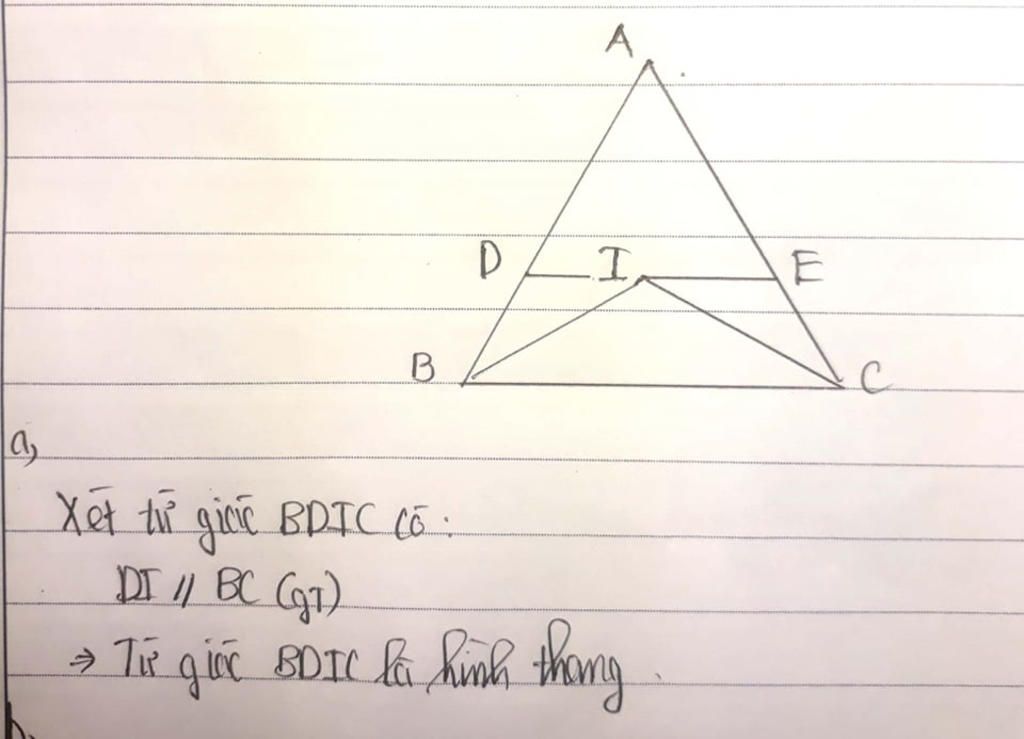 A
D I E
B C
a,
Xét tứ giác BDIC có:
DI // BC (gT)
⇒ Tứ giác BDIC là hình thang.
b,